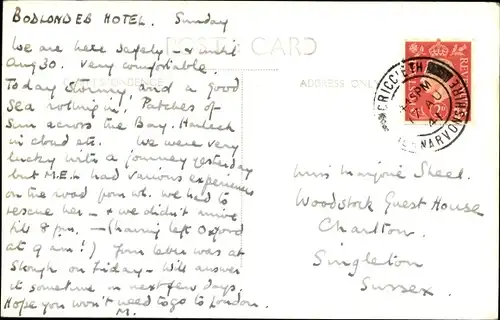 BODLONDEB HOTEL. Sunday
POST CARD
We are here safely - & until
Aug 30. Very comfortable.
CORRESPONDENCE
ADDRESS ONLY
Today Stormy, and a good
Sea rolling in. Patches of
Sun across the Bay. Harlech
in cloud etc. We were very
lucky with a journey yesterday
but M.E.L had various experiences
on the road from wh. we had to
rescue her - & we didn't arrive
till 8 pm. - (having left Oxford
at 9 am!) Your letter was at
Slough on Friday - Will answer
it sometime in next few days.
Hope you won't need to go to London.
M.
CRICCIETH
PM
17 AU
CAERNARVONSHIRE
REVENUE
Miss Marjorie Steel.
Woodstock Guest House
Charlton.
Singleton
Sussex.